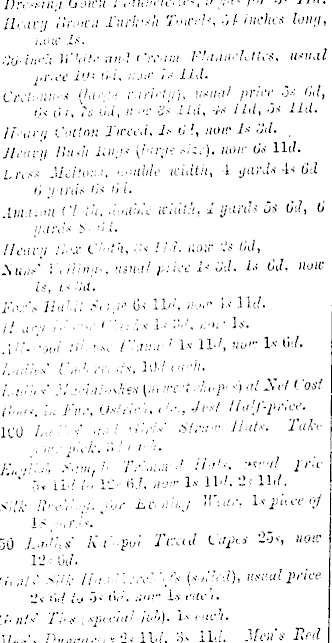 Dressing Gown Flannelettes,
Heavy Brown Turkish Towels, 54 inches long,
now 1s.
36-inch White and Cream Flannelettes, usual
price 10s 6d, now 7s 11d.
Cretonnes (large variety), usual price 5s 6d,
6s 6d, 7s 6d, now 3s 11d, 4s 11d, 5s 11d.
Heavy Cotton Tweed, 1s 6d, now 1s 3d.
Heavy Bush Rugs (large size), now 6s 11d.
Dress Meltons, double width, 4 yards 4s 6d
6 yards 6s 6d.
Amazon Cloth, double width, 4 yards 5s 6d, 6
yards
Heavy Box Cloth, 3s 11d, now 2s 6d,
Nuns' Veilings, usual price 1s 3d, 1s 6d, now
1s, 1s 3d.
Fox's Habit Serge 6s 11d, now 4s 11d.
Heavy 1s 3d, now 1s.
All-wool Blouse Flannel 1s 11d, now 1s 6d.
Ladies' 10d each.
Ladies' Macintoshes (newest shapes) at Net Cost
Boas, in Fur, Ostrich, etc., Just Half-price.
100 Ladies' and Girls' Straw Hats. Take
your pick, 3d each.
English Sample Trimmed Hats, usual pric
5s 11d to 12s 6d, now 1s 11d, 2s 11d.
Silk Ruching, for Evening Wear, 1s piece of
18 yards.
50 Ladies' Kaiapoi Tweed Capes 25s, now
12s 6d.
Gents' Silk Handkerchiefs (soiled), usual price
2s 6d to 5s 6d, now 1s each.
Gents' Ties (special job), 1s each.
Men's Dungarees 2s 11d, 3s 11d. Men's Red